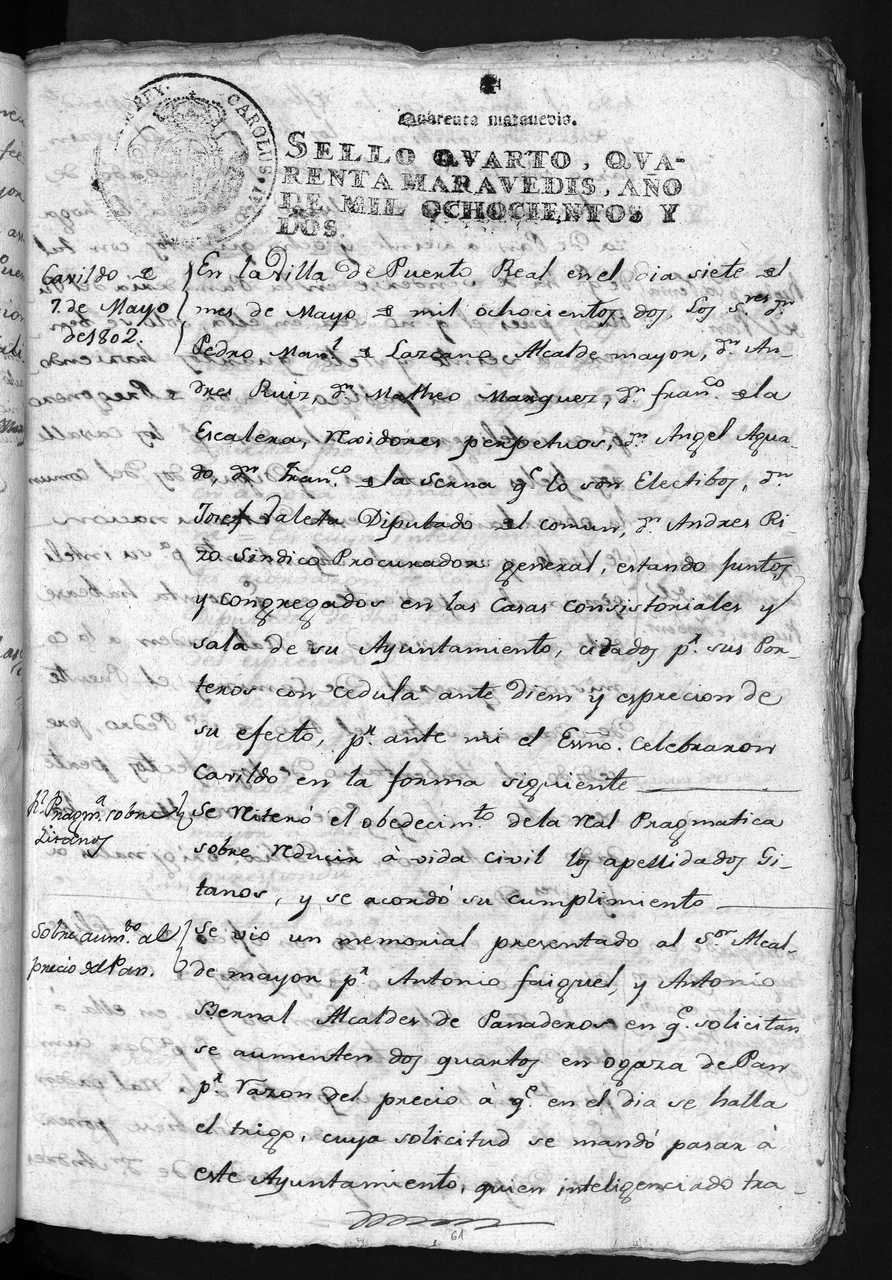 CAROLUS IV
REX.
Quarenta maravedis.
SELLO QVARTO, QVA-
RENTA MARAVEDIS, AÑO
DE MIL OCHOCIENTOS Y
DOS.
Cavildo de
7. de Mayo
de 1802.
En la Villa de Puerto Real en el dia siete del
mes de Mayo de mil ochocientos dos. Los S.res D.n
Pedro Man.l de Lazcano, Alcalde mayor, D.n An-
dres Ruiz, D.n Matheo Marquez, D.n Fran.co de la
Escalera, Rexidores perpetuos, D.n Angel Agua-
do, D.n Fran.co de la Serna q.e lo son Electibos, D.n
Josef Valeta Diputado del comun, D.n Andres Ri-
zo Sindico Procurador general, estando juntos
y congregados en las Casas consistoriales y
sala de su Ayuntamiento, citados p.r sus Por-
teros con cedula ante diem y esprecion de
su efecto, p.r ante mi el Essno. celebraron
Cavildo en la forma siguiente
R.l Pragm.a sobre
Gitanos
Se reiteró el obedecim.to de la Real Pragmatica
sobre reducir à vida civil los apellidados Gi-
tanos, y se acordó su cumplimiento
Sobre aum.to al
precio del Pan.
Se vio un memorial presentado al S.or Alcal-
de mayor p.r Antonio Faiquel, y Antonio
Bernal Alcaldes de Panaderos en q.e solicitan
se aumenten dos quartos en ogaza de Pan
p.r razon del precio à q.e en el dia se halla
el trigo, cuya solicitud se mandó pasar à
este Ayuntamiento, quien inteligenciado tra-
61